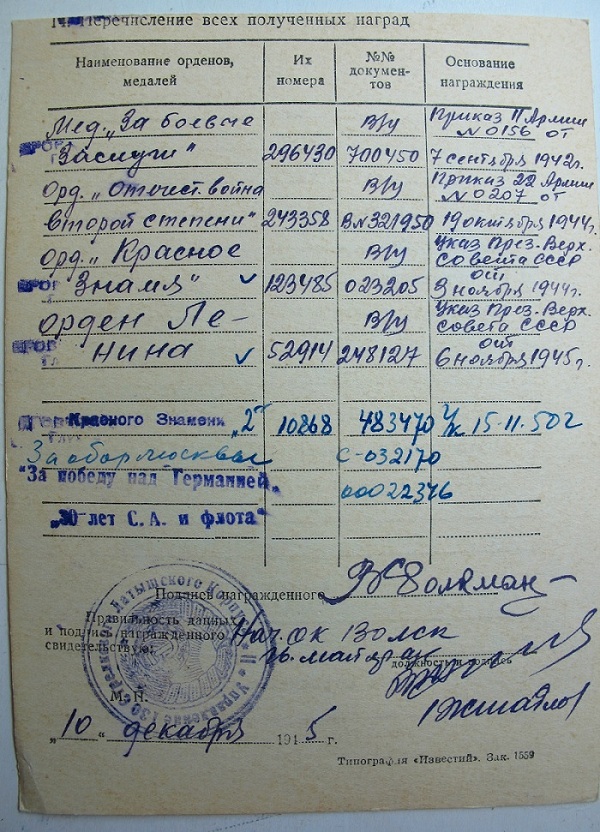 14. Перечисление всех полученных наград
Наименование орденов, медалей | Их номера | №№ документов | Основание награждения
Мед. „За боевые | В/у | Приказ 11 Армии
№ 0156 от
Заслуги" | 296430 | 700450 | 7 сентября 1942г.
Орд. „Отечест. война | В/у | Приказ 22 Армии
№ 0207 от
второй степени" | 243358 | В№ 321950 | 19 октября 1944г.
орд. „Красное | В/у | Указ През. Верх.
Совета СССР
от
Знамя" | 123485 | 023205 | 3 ноября 1944г.
орден Ле- | В/у | Указ През. Верх.
Совета СССР
от
нина | 52914 | 248127 | 6 ноября 1945г.
Красного Знамени „2" | 10868 | 483470 | Ук 15-11-50г
За обор Москвы | С-032170
"За победу над Германией" | 0022346
„30 лет С. А. и флота"
Подпись награжденного
Правильность данных
и подпись награжденного
свидетельствую: Нач. ОК 130 ЛСК
гв. майор
должность и подпись
М. П.
„10" декабря 1945 г.
Типография «Известий». Зак. 1559